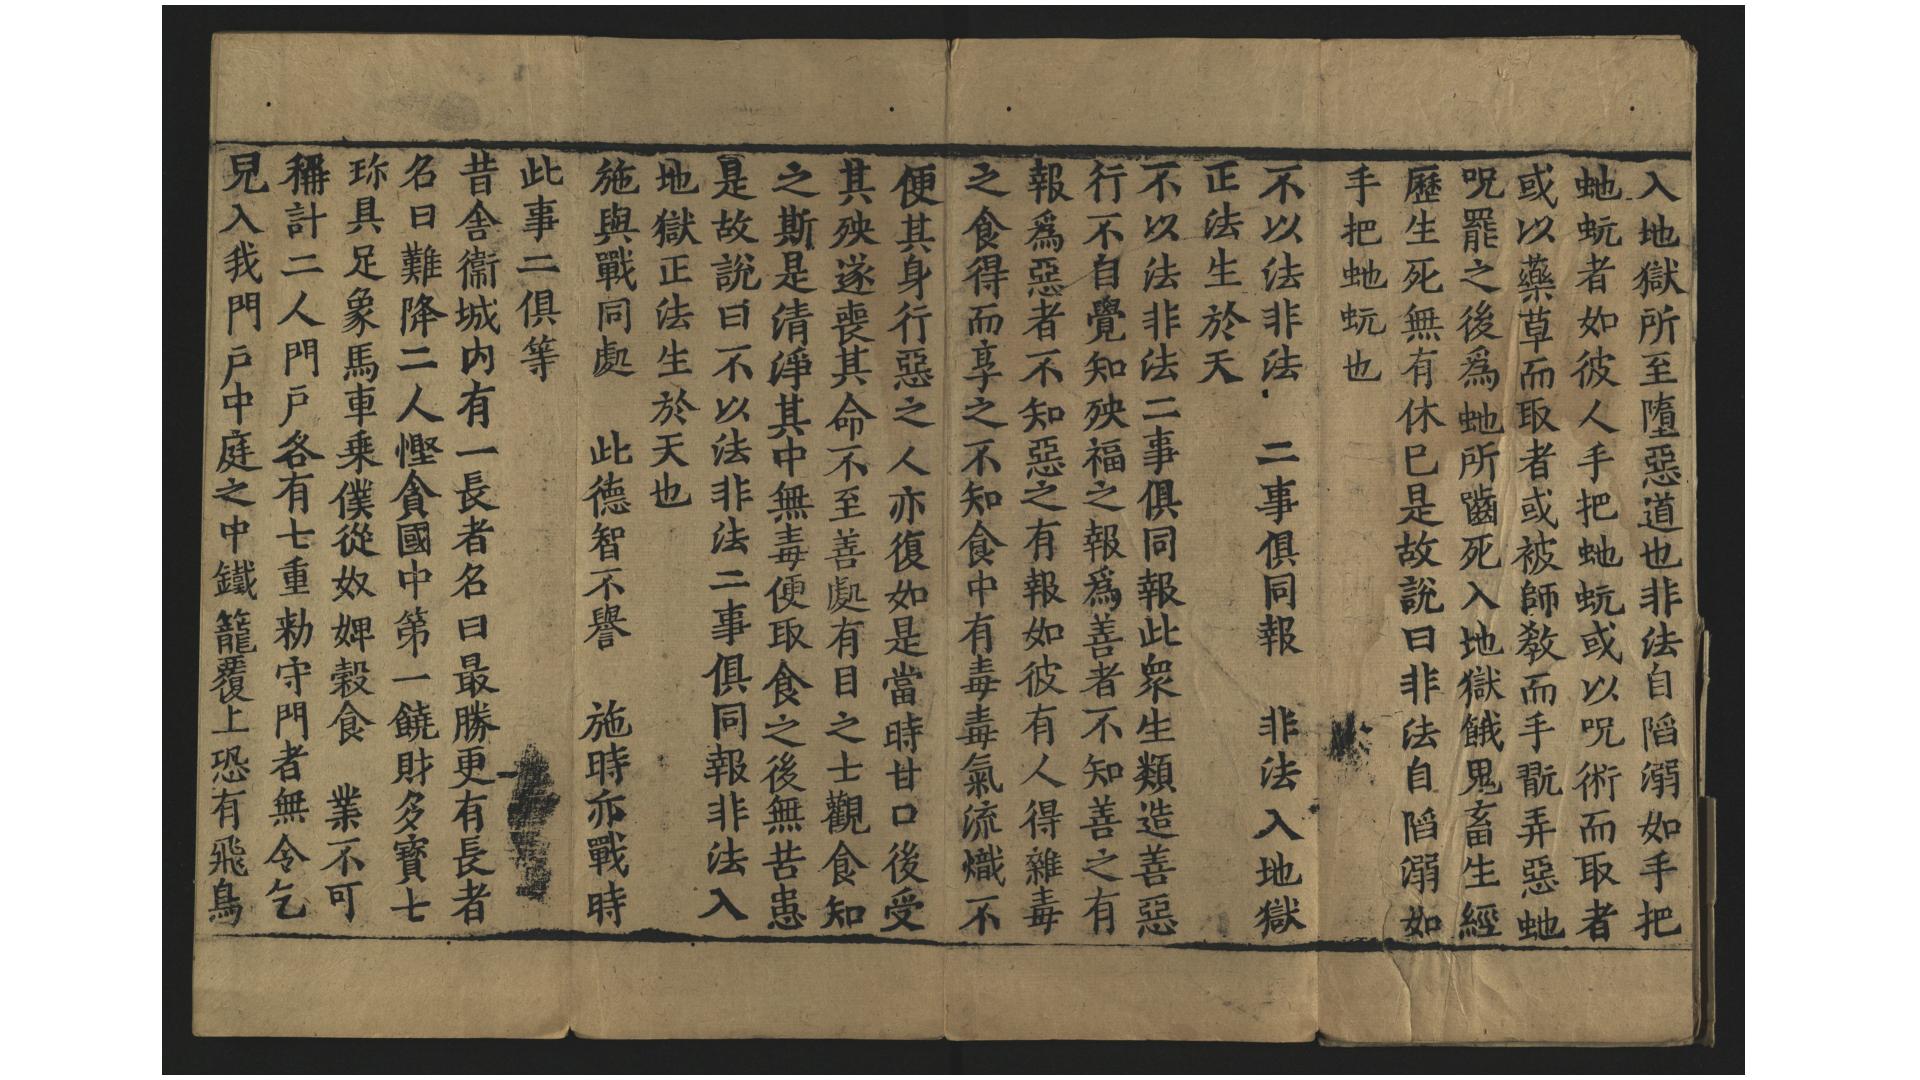 入地獄所至墮惡道也非法自陷溺如手把
虵蚖者如彼人手把虵蚖或以呪術而取者
或以藥草而取者或被師教而手翫弄惡虵
呪罷之後爲虵所齧死入地獄餓鬼畜生經
歷生死無有休已是故說曰非法自陷溺如
手把虵蚖也
不以法非法 二事俱同報 非法入地獄
正法生於天
不以法非法二事俱同報此衆生類造善惡
行不自覺知殃福之報爲善者不知善之有
報爲惡者不知惡之有報如彼有人得雜毒
之食得而享之不知食中有毒毒氣流熾不
便其身行惡之人亦復如是當時甘口後受
其殃遂喪其命不至善處有目之士觀食知
之斯是清淨其中無毒便取食之後無苦患
是故說曰不以法非法二事俱同報非法入
地獄正法生於天也
施與戰同處 此德智不譽 施時亦戰時
此事二俱等
昔舍衞城内有一長者名曰最勝更有長者
名曰難降二人慳貪國中第一饒財多寶七
珎具足象馬車乗僕從奴婢穀食 業不可
稱計二人門戶各有七重勑守門者無令乞
兒入我門戶中庭之中鐵籠覆上恐有飛鳥